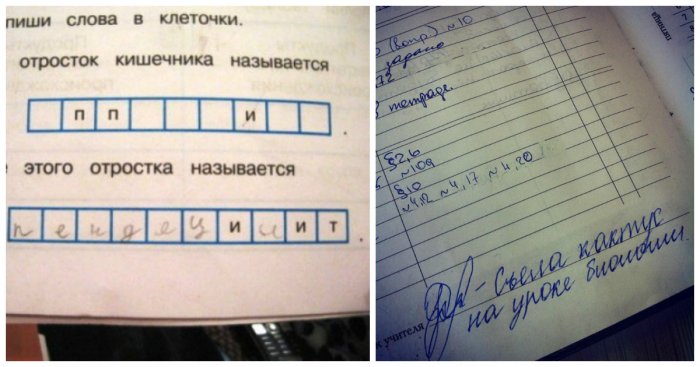 пиши слова в клеточки.
отросток кишечника называется
п п и .
этого отростка называется
п е н д е ц и ц и т .
(вопр.) №10
задано
72
тетраде.
§2,6
№109
§10
№4,12 №4,17 №4,20
- Съела кактус
на уроке биологии.
учителя